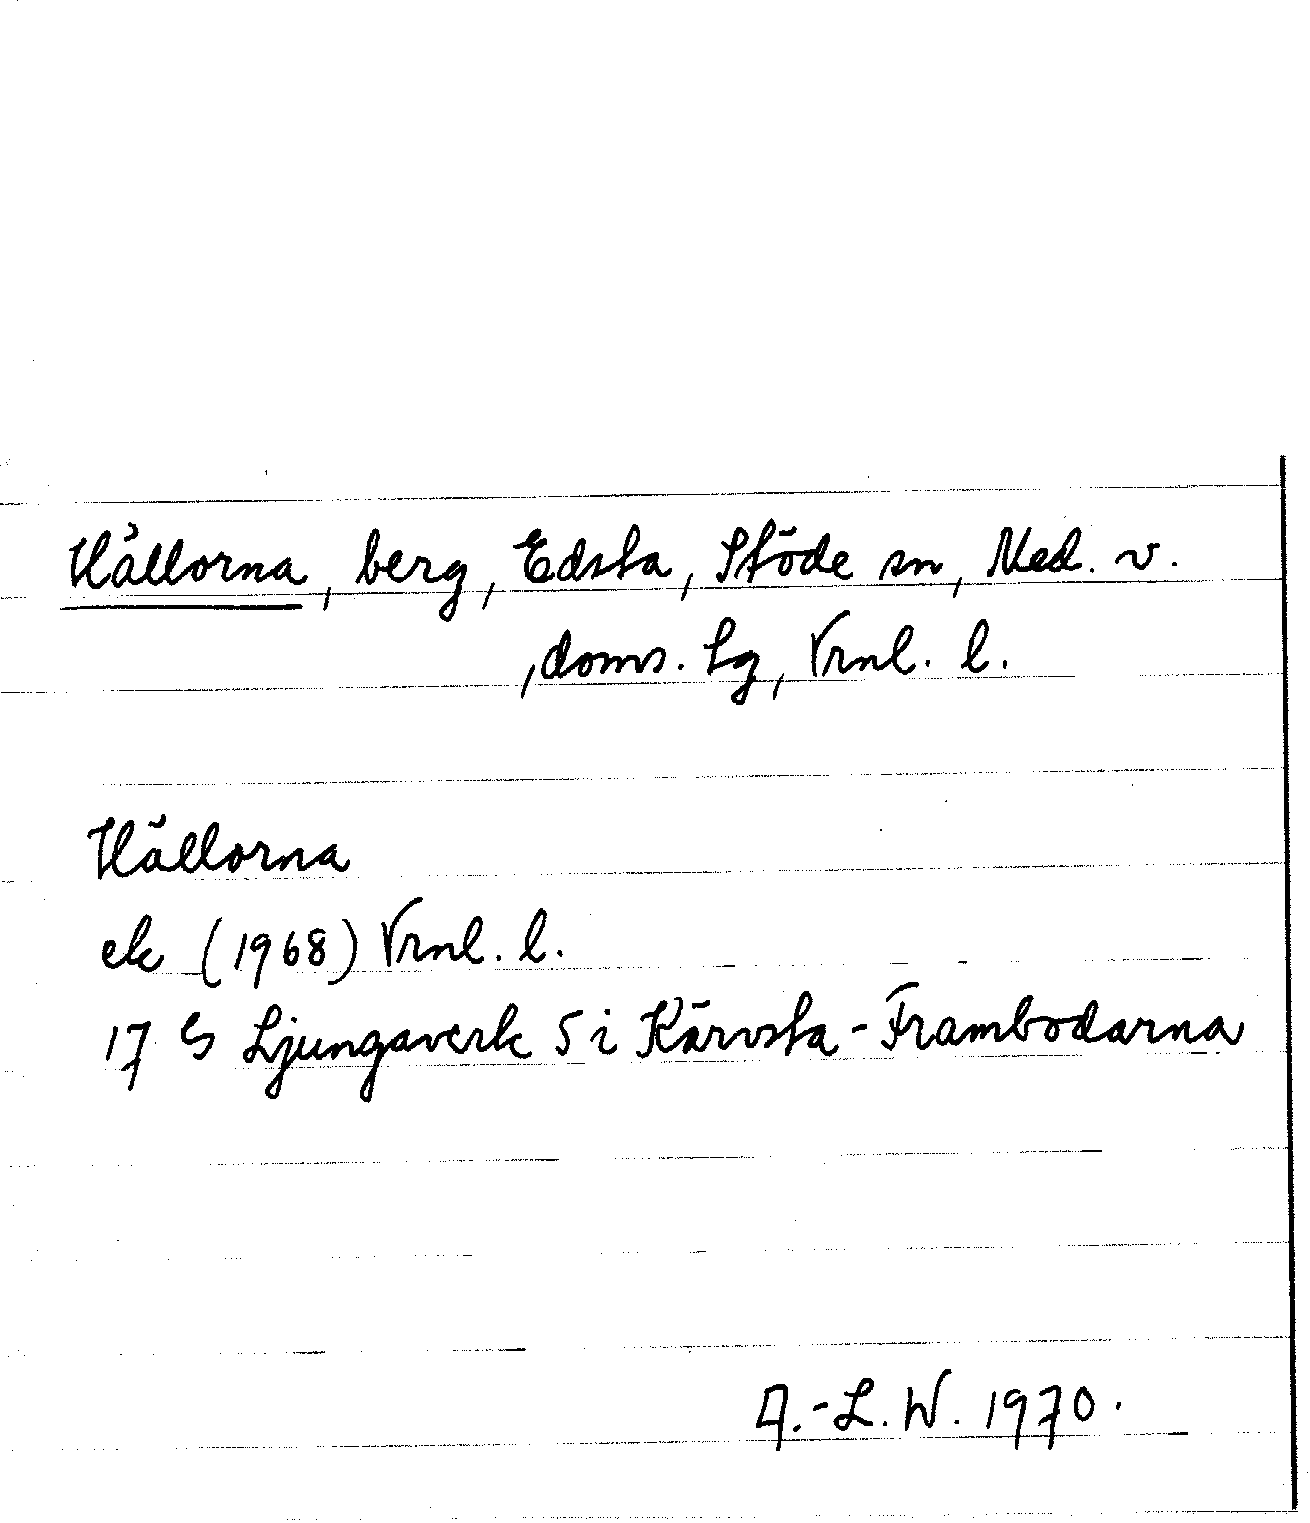 Hällorna, berg, Edsta, Stöde sn, Med. v.
, doms. Lg, Vrnl. l.
Hällorna
ek (1968) Vrnl. l.
17 G Ljungaverk 5 i Kärvsta-Frambodarna
A.-L. W. 1970.